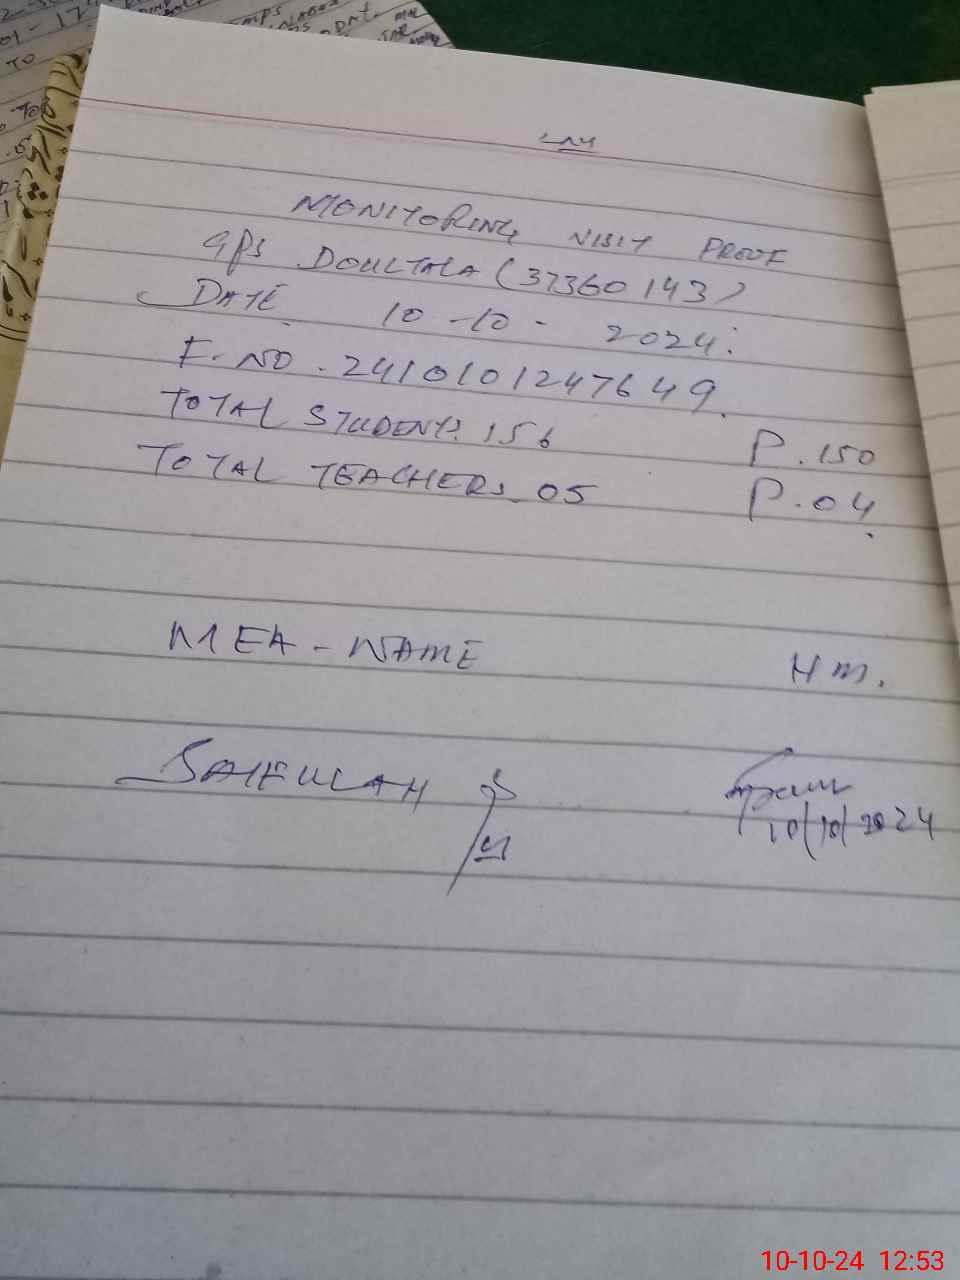 MONITORING VISIT PROOF
GPS DOULTALA (37360143)
DATE 10-10-2024.
F.NO.2410101247649.
TOTAL STUDENTS. 156 P.150
TOTAL TEACHERS. 05 P.04.
MEA-NAME HM.
SAIFULLAH
10/10/2024
10-10-24 12:53